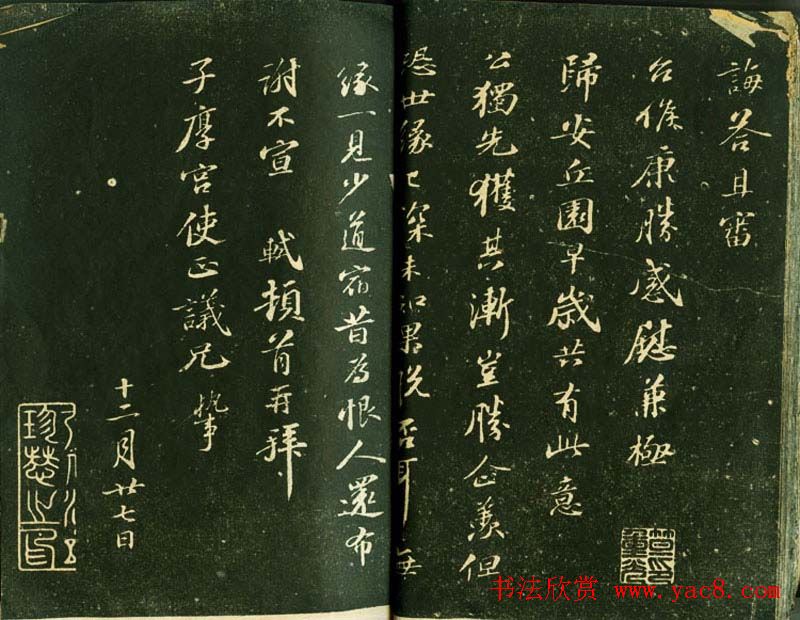 誨答且審
台候康勝感慰兼極
歸安丘園早歲共有此意
公獨先獲其漸豈勝企羨但
恐世緣已深未知果脫否耳無
緣一見少道宿昔為恨人還布
謝不宣 軾頓首再拜
子厚宮使正議兄 執事
十二月廿七日
书法欣赏 www.yac8.com